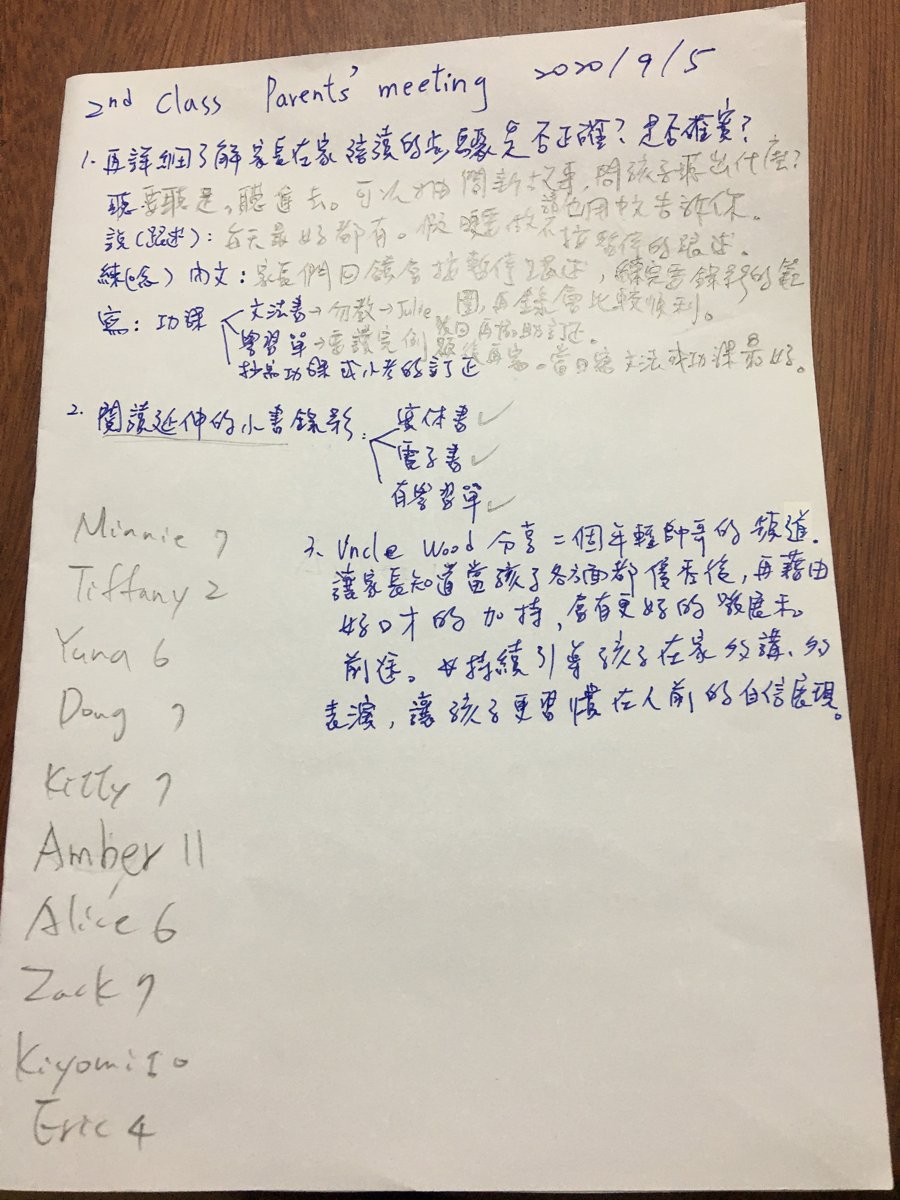 2nd Class Parents' meeting 2020/9/5
1. 再詳細了解家長在家陪讀的步驟是否正確？是否確實？
聽：要聽是，聽進去。可以抽問新故事，問孩子聽出什麼？
說(跟述)：每天最好都有。 不按暫停的跟述。
練(唸)內文：家長們回饋會按暫停跟述，練完要錄影的範
圍，再錄會比較順利。
寫：功課 文法書→勿教→Julie 後日再協助訂正
學習單→要讀完例題後再寫。當日寫文法或功課最好。
抄寫功課或小考的訂正
2. 閱讀延伸的小書錄影： 實体書✓
電子書✓
有學習單✓
3. Uncle Wood 分享二個年輕帥哥的頻道.
讓家長知道當孩子各方面都優秀後，再藉由
好口才的加持，會有更好的發展和
前途。 持續引導孩子在家多講、多
表演，讓孩子更習慣在人前的自信展現。
Minnie 7
Tiffany 2
Yuna 6
Doug 7
Kitty 7
Amber 11
Alice 6
Zack 7
Kiyomi 10
Eric 4